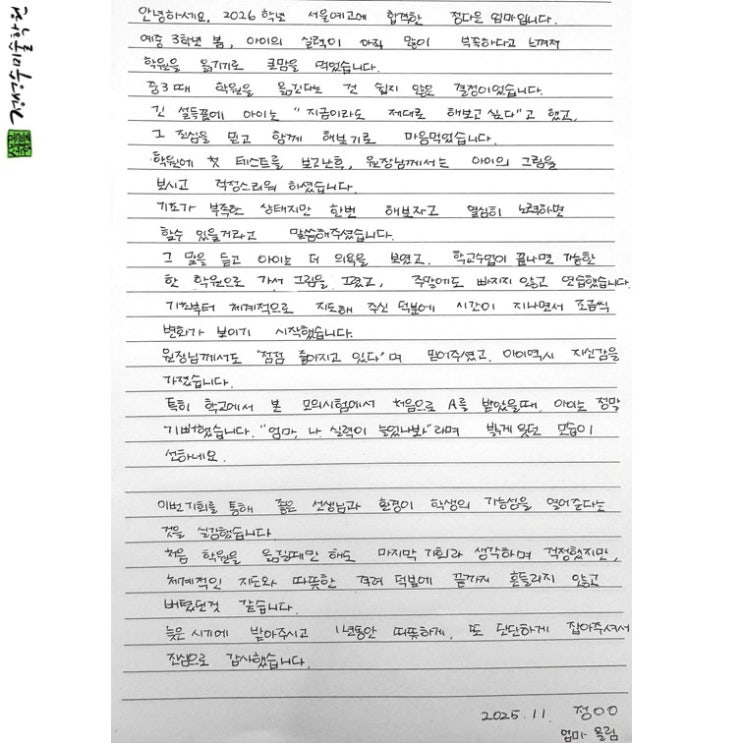 안녕하세요, 2026학년 서울예고에 합격한 정다은 엄마입니다.
예중 3학년 봄, 아이의 실력이 아직 많이 부족하다고 느껴져
학원을 옮기기로 큰맘을 먹었습니다.
중3 때 학원을 옮긴다는 건 쉽지 않은 결정이었습니다.
긴 설득끝에 아이는 "지금이라도 제대로 해보고 싶다"고 했고,
그 진심을 믿고 함께 해보기로 마음먹었습니다.
학원에 첫 테스트를 보고난후, 원장님께서는 아이의 그림을
보시고 걱정스러워 하셨습니다.
기초가 부족한 상태지만 한번 해보자고 열심히 노력하면
할수 있을거라고 말씀해주셨습니다.
그 말을 듣고 아이는 더 의욕을 보였고, 학교수업이 끝나면 가능한
한 학원으로 가서 그림을 그렸고, 주말에도 빠지지 않고 연습했습니다.
기초부터 체계적으로 지도해 주신 덕분에 시간이 지나면서 조금씩
변화가 보이기 시작했습니다.
원장님께서도 "점점 좋아지고 있다"며 믿어주셨고, 아이역시 자신감을
가졌습니다.
특히 학교에서 본 모의시험에서 처음으로 A를 받았을때, 아이는 정말
기뻐했습니다. "엄마, 나 실력이 늘었나봐"라며 밝게 웃던 모습이
선하네요.
이번기회를 통해 좋은 선생님과 환경이 학생의 가능성을 열어준다는
것을 실감했습니다
처음 학원을 옮길때만 해도 마지막 기회라 생각하며 걱정했지만,
체계적인 지도와 따뜻한 격려 덕분에 끝까지 흔들리지 않고
버텼던것 같습니다.
늦은 시기에 받아주시고 1년동안 따뜻하게, 또 단단하게 잡아주셔서
진심으로 감사했습니다.
2025.11. 정OO
엄마 올림